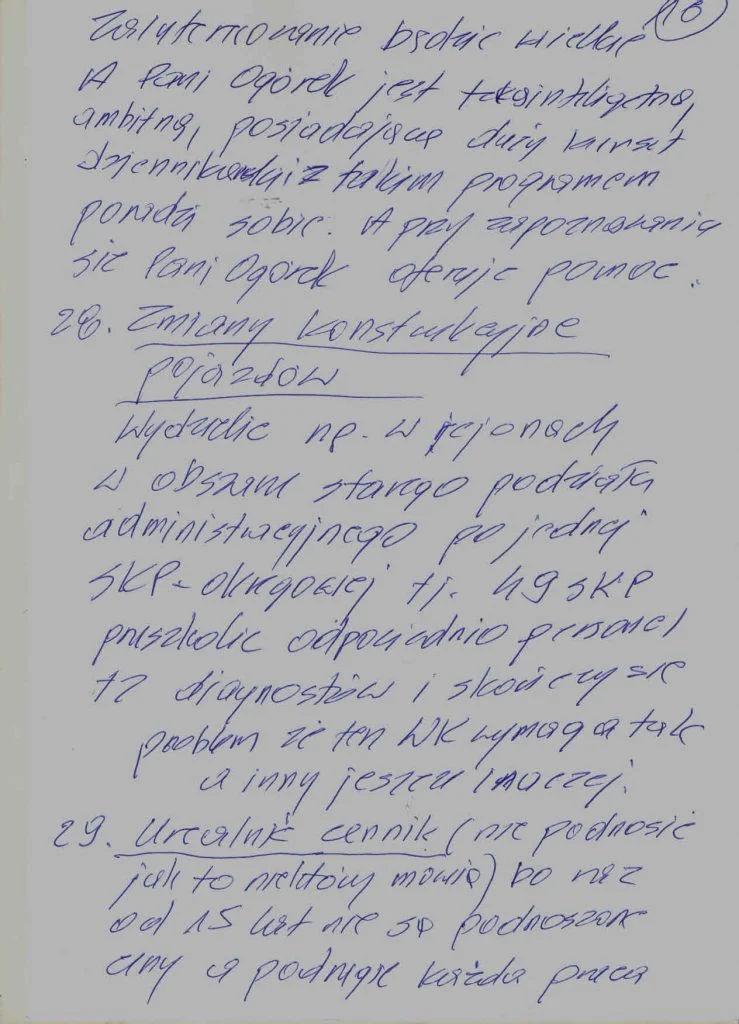 118
Zainteresowanie będzie wielkie
A Pani Ogórek jest taka inteligetną,
ambitną, posiadającą duży
dziennikarski z takim programem
poradzi sobie. A przy zapoznawaniu
się Pani Ogórek oferuję pomoc.
28. Zmiany konstrukcyjne
pojazdów
Wydzielić np. w rejonach
w obszarze starego podziału
administracyjnego po jednej
SKP - okręgowej tj. 49 SKP
przeszkolić odpowiednio personel
tz diagnostów i skończy się
problem że ten WK wymaga tak
a inny jeszcze inaczej.
29. Urealnić cennik (nie podnosić
jak to niektórzy mówią) bo
od 15 lat nie są podnoszone
ceny a podnosi każda praca